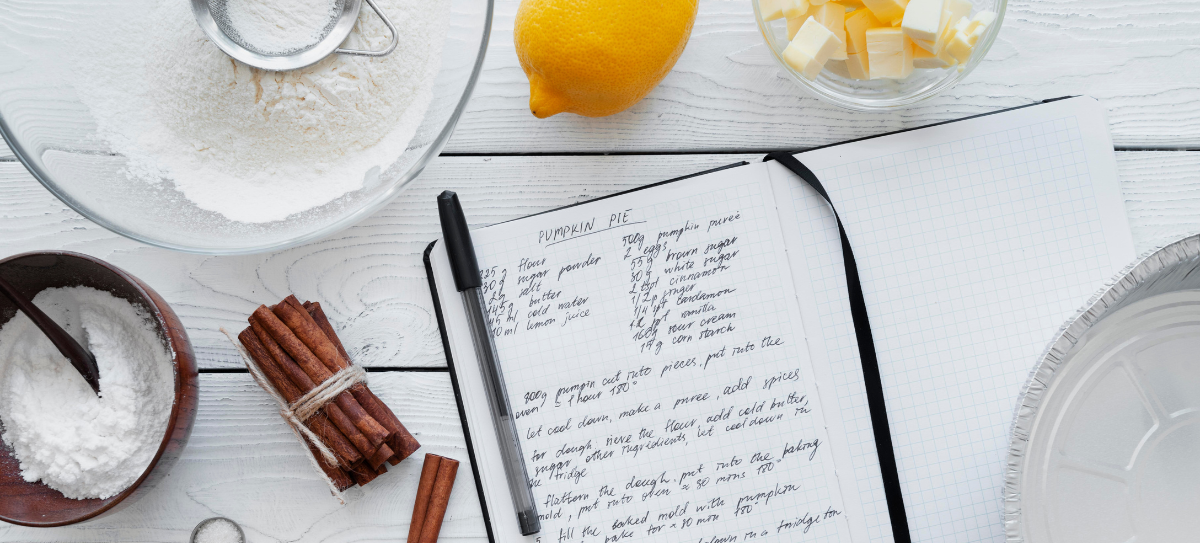 PUMPKIN PIE
225 g flour
30 g sugar powder
2g salt
145g butter
45 ml cold water
10 ml lemon juice
500g pumpkin pureé
2 eggs
55g brown sugar
30g white sugar
2 tspt cinnamon
1/2 p ginger
1/4 spt cardemon
vanilla
160g sour cream
15g corn starch
800g pumpin cut into pieces, put into the
oven 1 hour 180°
let cool down, make a puree, add spices
for dough, sieve the flour, add cold butter,
sugar other ingridients, let cool down in
fridge
flatten the dough, put into the baking
mold, put into oven ≈ 30 mins 180°
fill the baked mold with pumpkin
bake for ≈ 40 min 180°
down in a fridge for